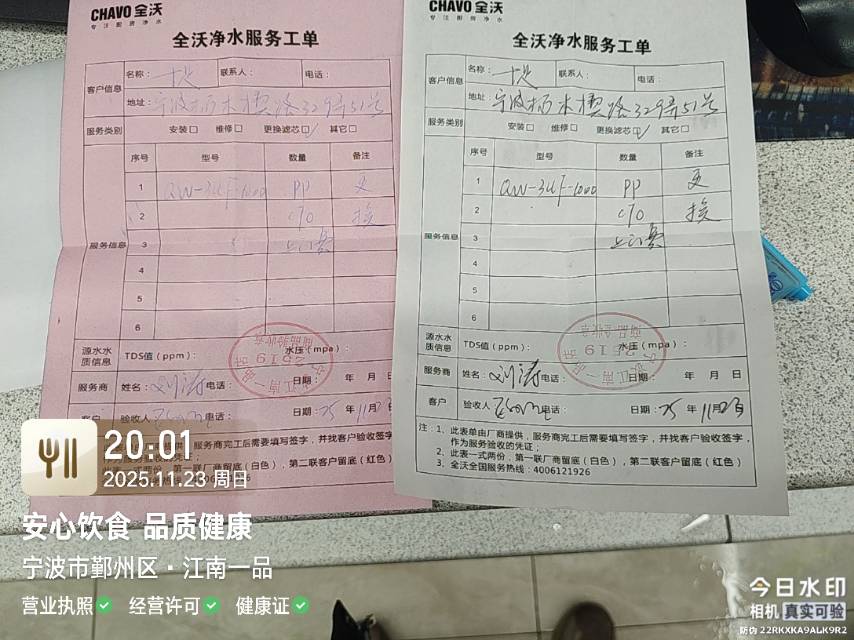 CHAVO 全沃
专注厨房净水
全沃净水服务工单
客户信息
名称：
联系人：
电话：
地址：宁波 木槿路329弄51号
服务类别
安装□ 维修□ 更换滤芯☑ 其它□
服务信息
序号 型号 数量 备注
1 QW-3UF-1000 PP 更
2 C10 换
3
4
5
6
源水水质信息
TDS值（ppm）： 水压（mpa）：
服务商 姓名：刘涛 电话： 日期： 年 月 日
客户 验收人 电话： 日期：25年11月23日
服务商完工后需要填写签字，并找客户验收签字，
第一联厂商留底（白色），第二联客户留底（红色）
CHAVO 全沃
专注厨房净水
全沃净水服务工单
客户信息
名称：
联系人：
电话：
地址：宁波 木槿路329弄51号
服务类别
安装□ 维修□ 更换滤芯☑ 其它□
服务信息
序号 型号 数量 备注
1 QW-3UF-1000 PP 更
2 C10 换
3
4
5
6
源水水质信息
TDS值（ppm）： 水压（mpa）：
服务商 姓名：刘涛 电话： 日期： 年 月 日
客户 验收人 电话： 日期：25年11月23日
注：1、此表单由厂商提供，服务商完工后需要填写签字，并找客户验收签字，
作为服务验收的凭证；
2、此表一式两份，第一联厂商留底（白色），第二联客户留底（红色）
3、全沃全国服务热线：4006121926
20:01
2025.11.23 周日
安心饮食 品质健康
宁波市鄞州区·江南一品
营业执照 经营许可 健康证
今日水印
相机 真实可验
防伪 22RKXKA9ALK9R2